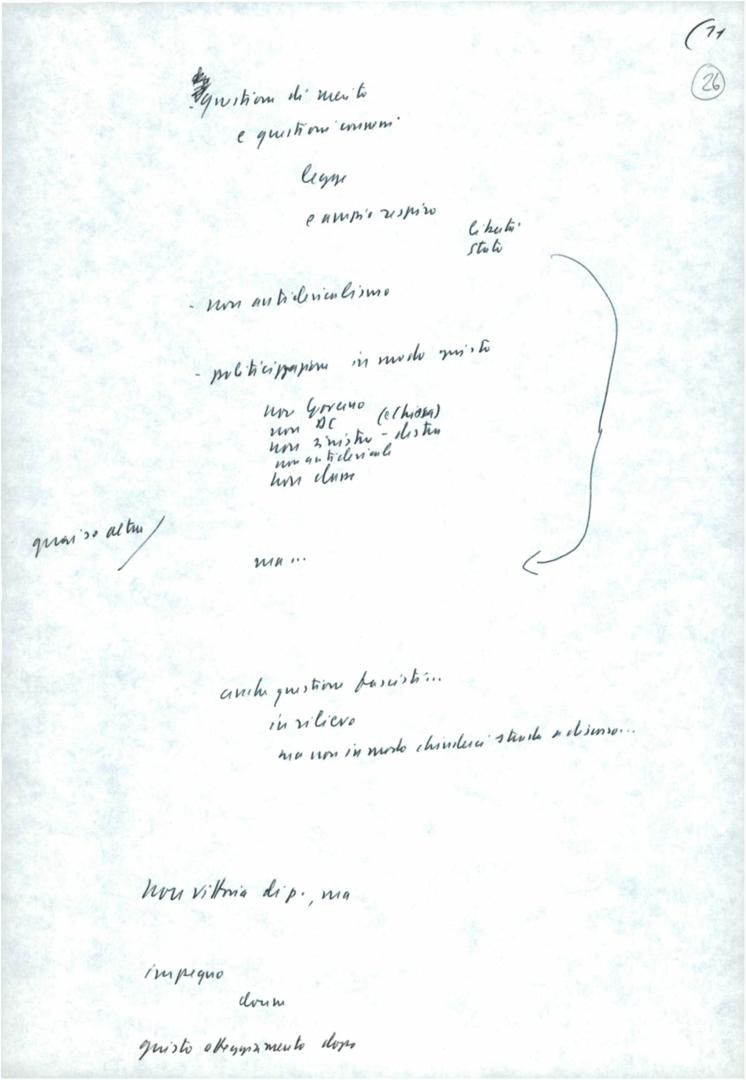 (11
26
questioni di merito
e questioni comuni
legge
e ampio respiro
libertà
stato
- non anticlericalismo
- politicizzazione in modo giusto
non Governo
non DC (e Chiesa)
non sinistra - destra
non anticlericali
non donne
quasi se altra /
ma...
anche questione fascisti...
in rilievo
ma non in modo chiuderci strada a discorso...
Non vittoria di p., ma
impegno
donne
giusto atteggiamento dopo